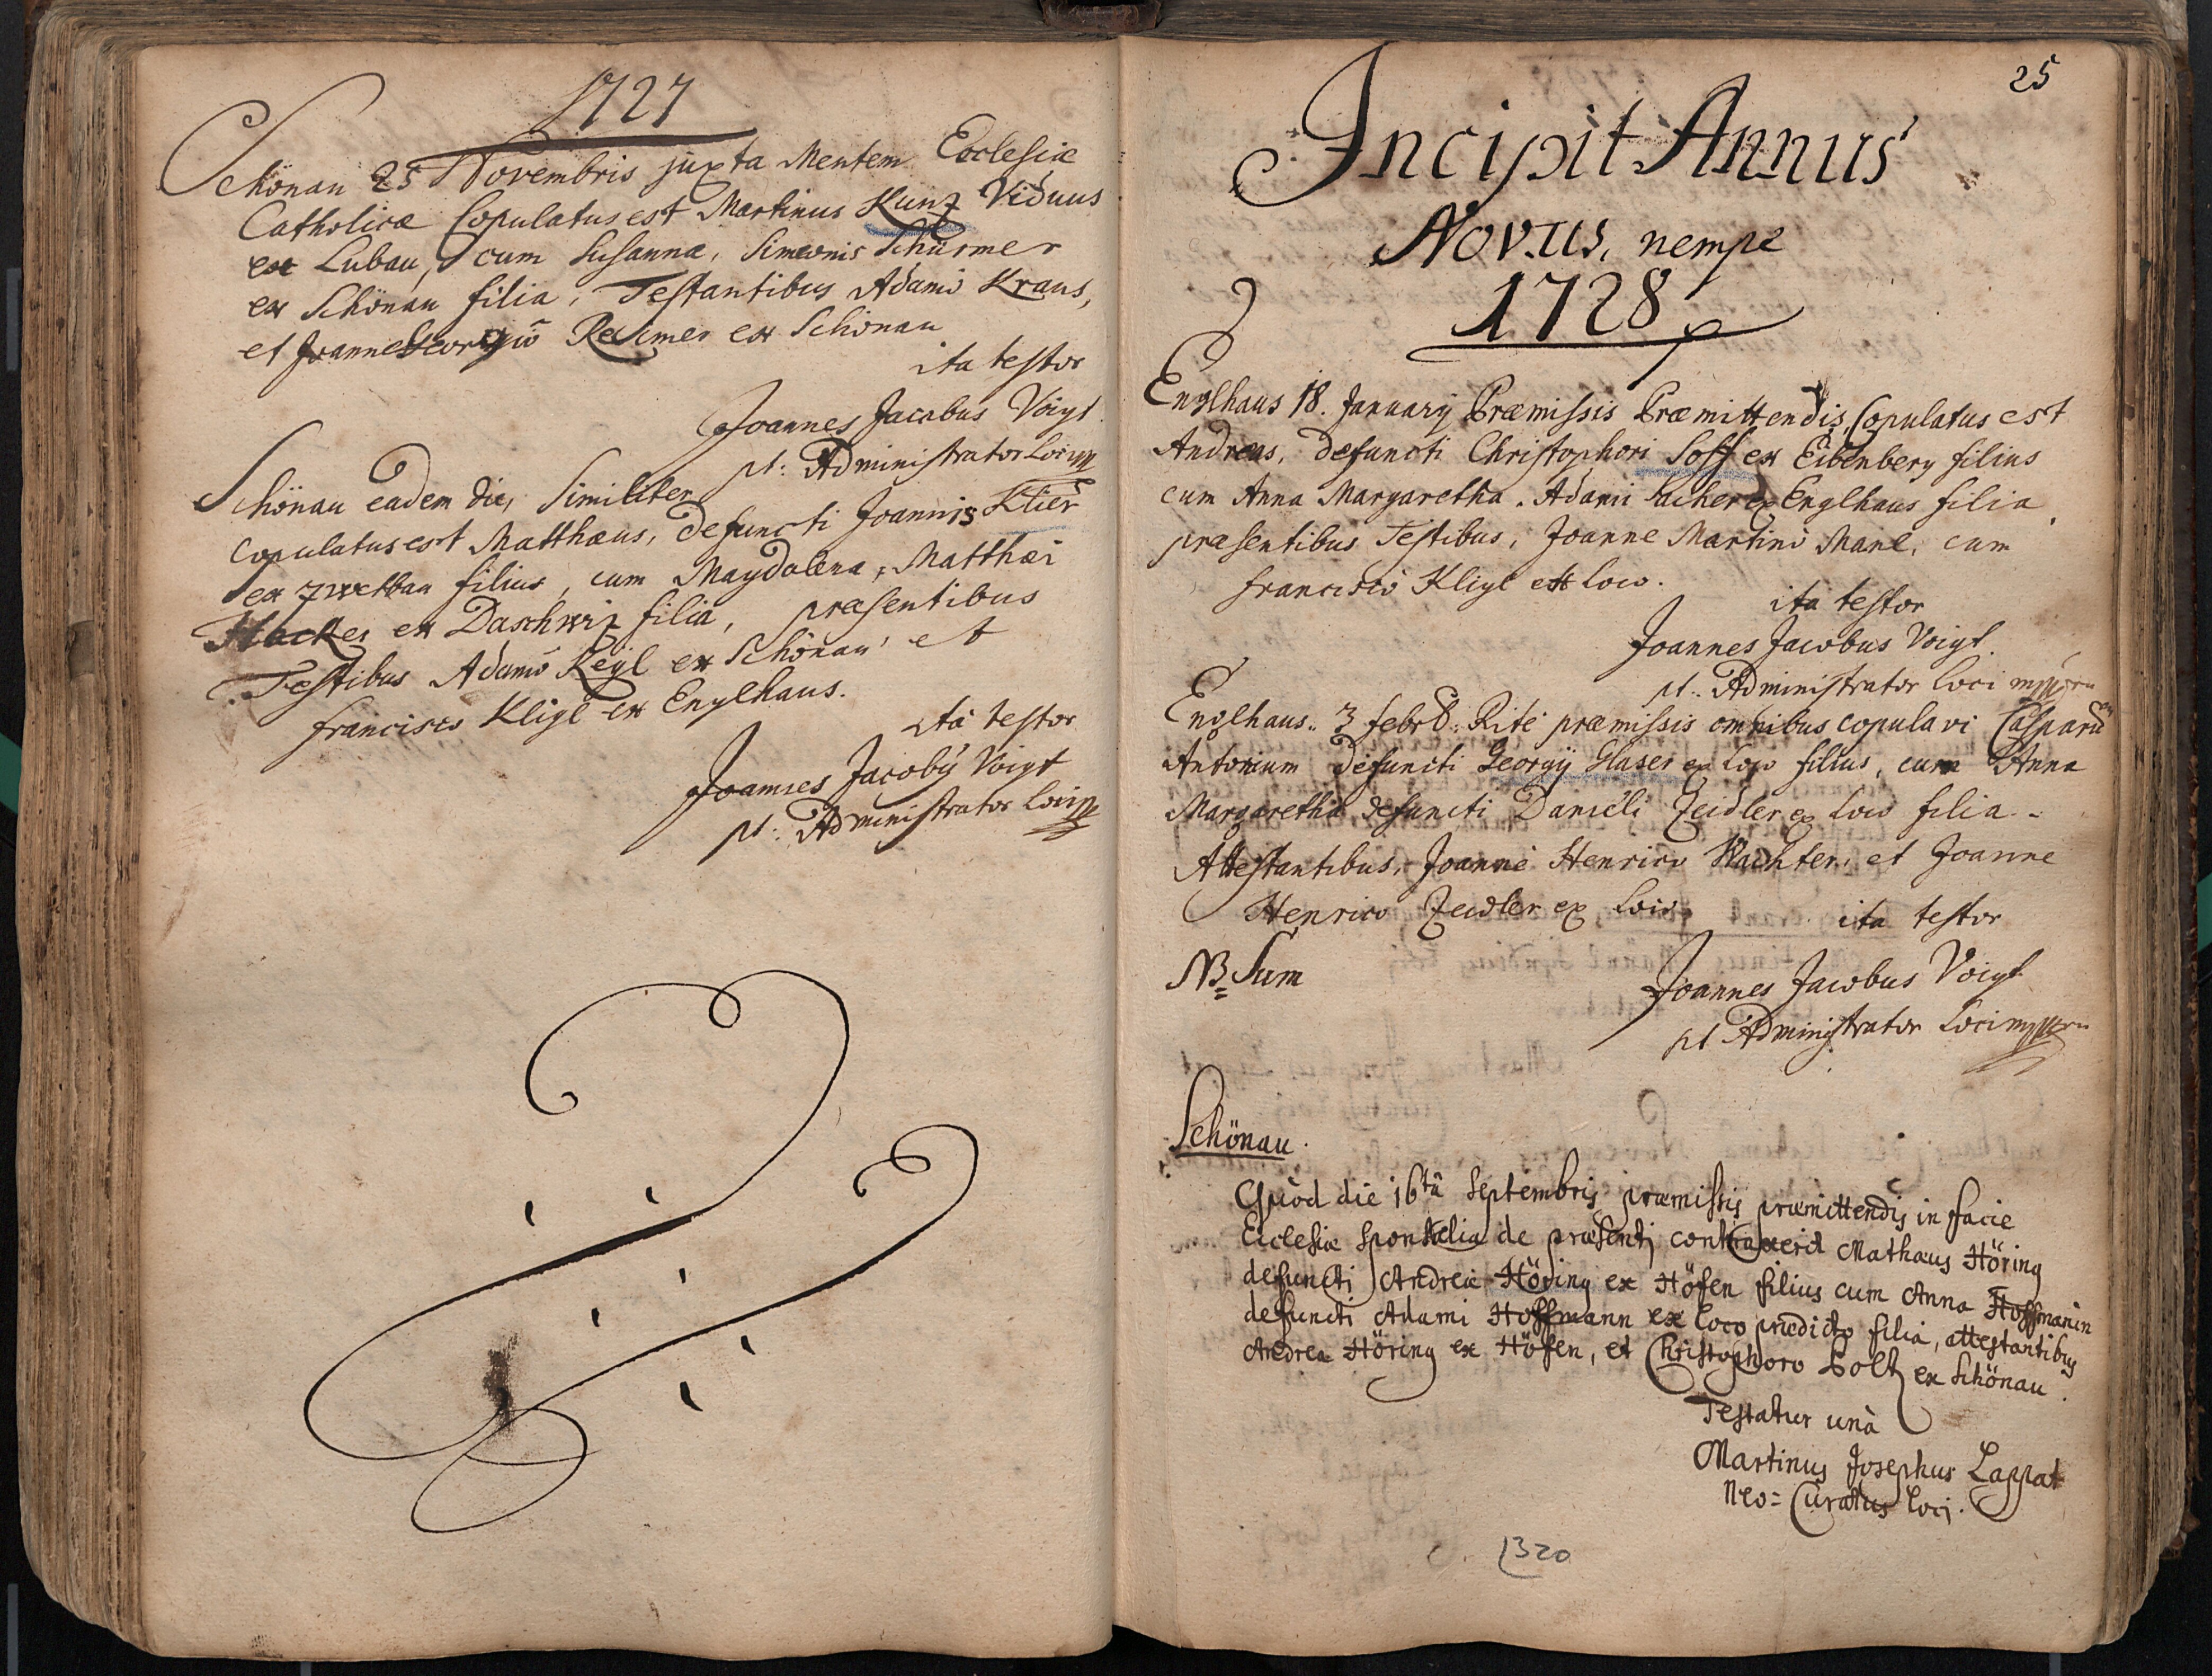 1727
Schönau 25 Novembris juxta Mentem Ecclesiæ
Catholicæ Copulatus est Martinus Kunz Viduus
ex Lubau, cum Susanna, Simeonis Schürmer
ex Schönau filia, Testantibus Adamo Kraus,
et Joanne Georgio ex Schönau
ita testor
Joannes Jacobus Voigt
pt: Administrator Loci
Schönau eadem die, Similiter
copulatus est Matthæus, defuncti Joannis Klier
ex zwetbau filius, cum Magdalena, Matthæi
Hacker ex Daschwiz filia, præsentibus
Testibus Adamo Keÿl ex Schönau et
francisco Kligl ex Englhaus.
ita testor
Joannes Jacobÿ Voigt
pt: Administrator Loci
25
Incipit Annus
Novus, nempe
1728
Englhaus 18. Januarÿ Præmissis Præmittendis, Copulatus est
Andreas, defuncti Christophori Soff ex Eibenberg filius
cum Anna Margaretha. Adami Sacher ex Englhaus filia.
præsentibus Testibus, Joanne Martino Manl, cum
francisco Kligl ex loco.
ita testor
Joannes Jacobus Voigt.
pt: Administrator Loci mppria
Englhaus.. 3 febr: Rite præmissis omnibus copulavi Casparum
Antonium defuncti Georgÿ Glaser ex loco filius, cum Anna
Margaretha defuncti Danieli Zeidler ex loco filia.
Attestantibus, Joanne Henrico Wachter, et Joanne
Henrico Zeidler ex loco.
ita testor
NB= Sum
Joannes Jacobus Voigt
pt Administrator Loci mppria
Schönau.
Quòd die 16tâ Septembris præmissis præmittendis in facie
Ecclesiæ Sponsalia de præsenti contraxerit Mathæus Höring
defuncti Andreæ Höring ex Höfen filius cum Anna Hoffmanin
defuncti Adami Hoffmann ex loco prædicto filia, attestantibus
Andrea Höring ex Höfen, et Christophoro Poltz ex Schönau.
Testatur unà
Martinus Josephus Lappat
Neo= Curatus loci.
1320